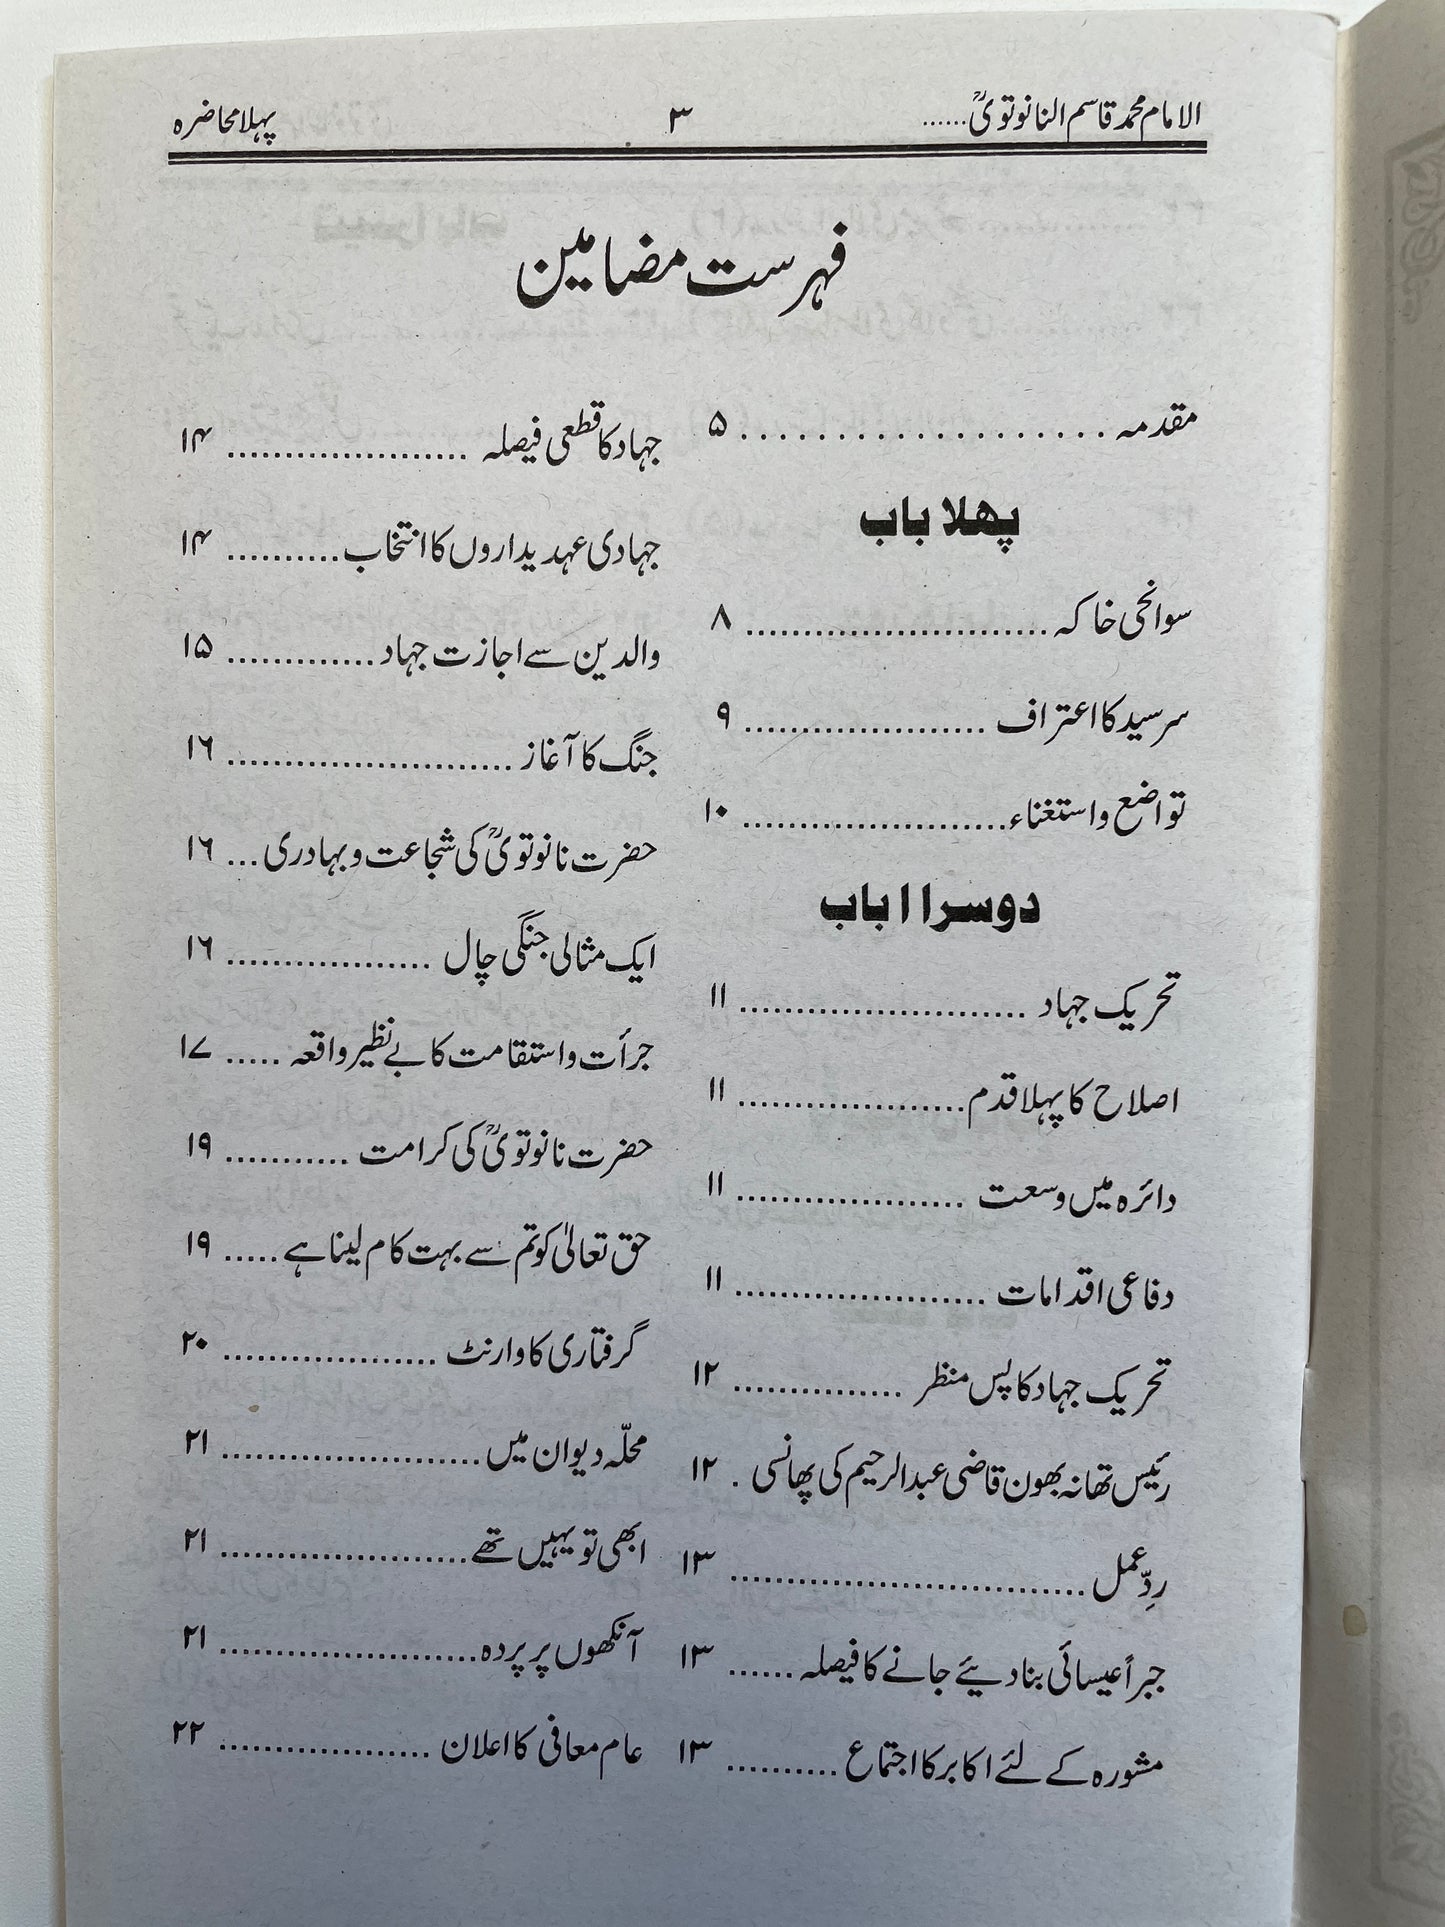 الامام محمد قاسم النانوتویؒ ......
۳
پہلا محاضرہ
فہرست مضامین
مقدمہ .................... ۵
پہلا باب
سوانحی خاکہ .......................... ۸
سرسید کا اعتراف ..................... ۹
تواضع و استغناء ....................... ۱۰
دوسرا ا باب
تحریک جہاد ......................... ۱۱
اصلاح کا پہلا قدم .................... ۱۱
دائرہ میں وسعت .................... ۱۱
دفاعی اقدامات ...................... ۱۱
تحریک جہاد کا پس منظر ............... ۱۲
رئیس تھانہ بھون قاضی عبدالرحیم کی پھانسی . ۱۲
ردِّ عمل ............................... ۱۳
جبراً عیسائی بنا دیئے جانے کا فیصلہ ...... ۱۳
مشورہ کے لئے اکابر کا اجتماع .......... ۱۳
جہاد کا قطعی فیصلہ ..................... ۱۴
جہادی عہدیداروں کا انتخاب .......... ۱۴
والدین سے اجازت جہاد ............. ۱۵
جنگ کا آغاز ......................... ۱۶
حضرت نانوتویؒ کی شجاعت و بہادری ... ۱۶
ایک مثالی جنگی چال .................. ۱۶
جرأت و استقامت کا بے نظیر واقعہ ..... ۱۷
حضرت نانوتویؒ کی کرامت ........... ۱۹
حق تعالیٰ کو تم سے بہت کام لینا ہے ..... ۱۹
گرفتاری کا وارنٹ ................... ۲۰
محلّہ دیوان میں ....................... ۲۱
ابھی تو یہیں تھے ...................... ۲۱
آنکھوں پر پردہ ....................... ۲۱
عام معافی کا اعلان ................... ۲۲